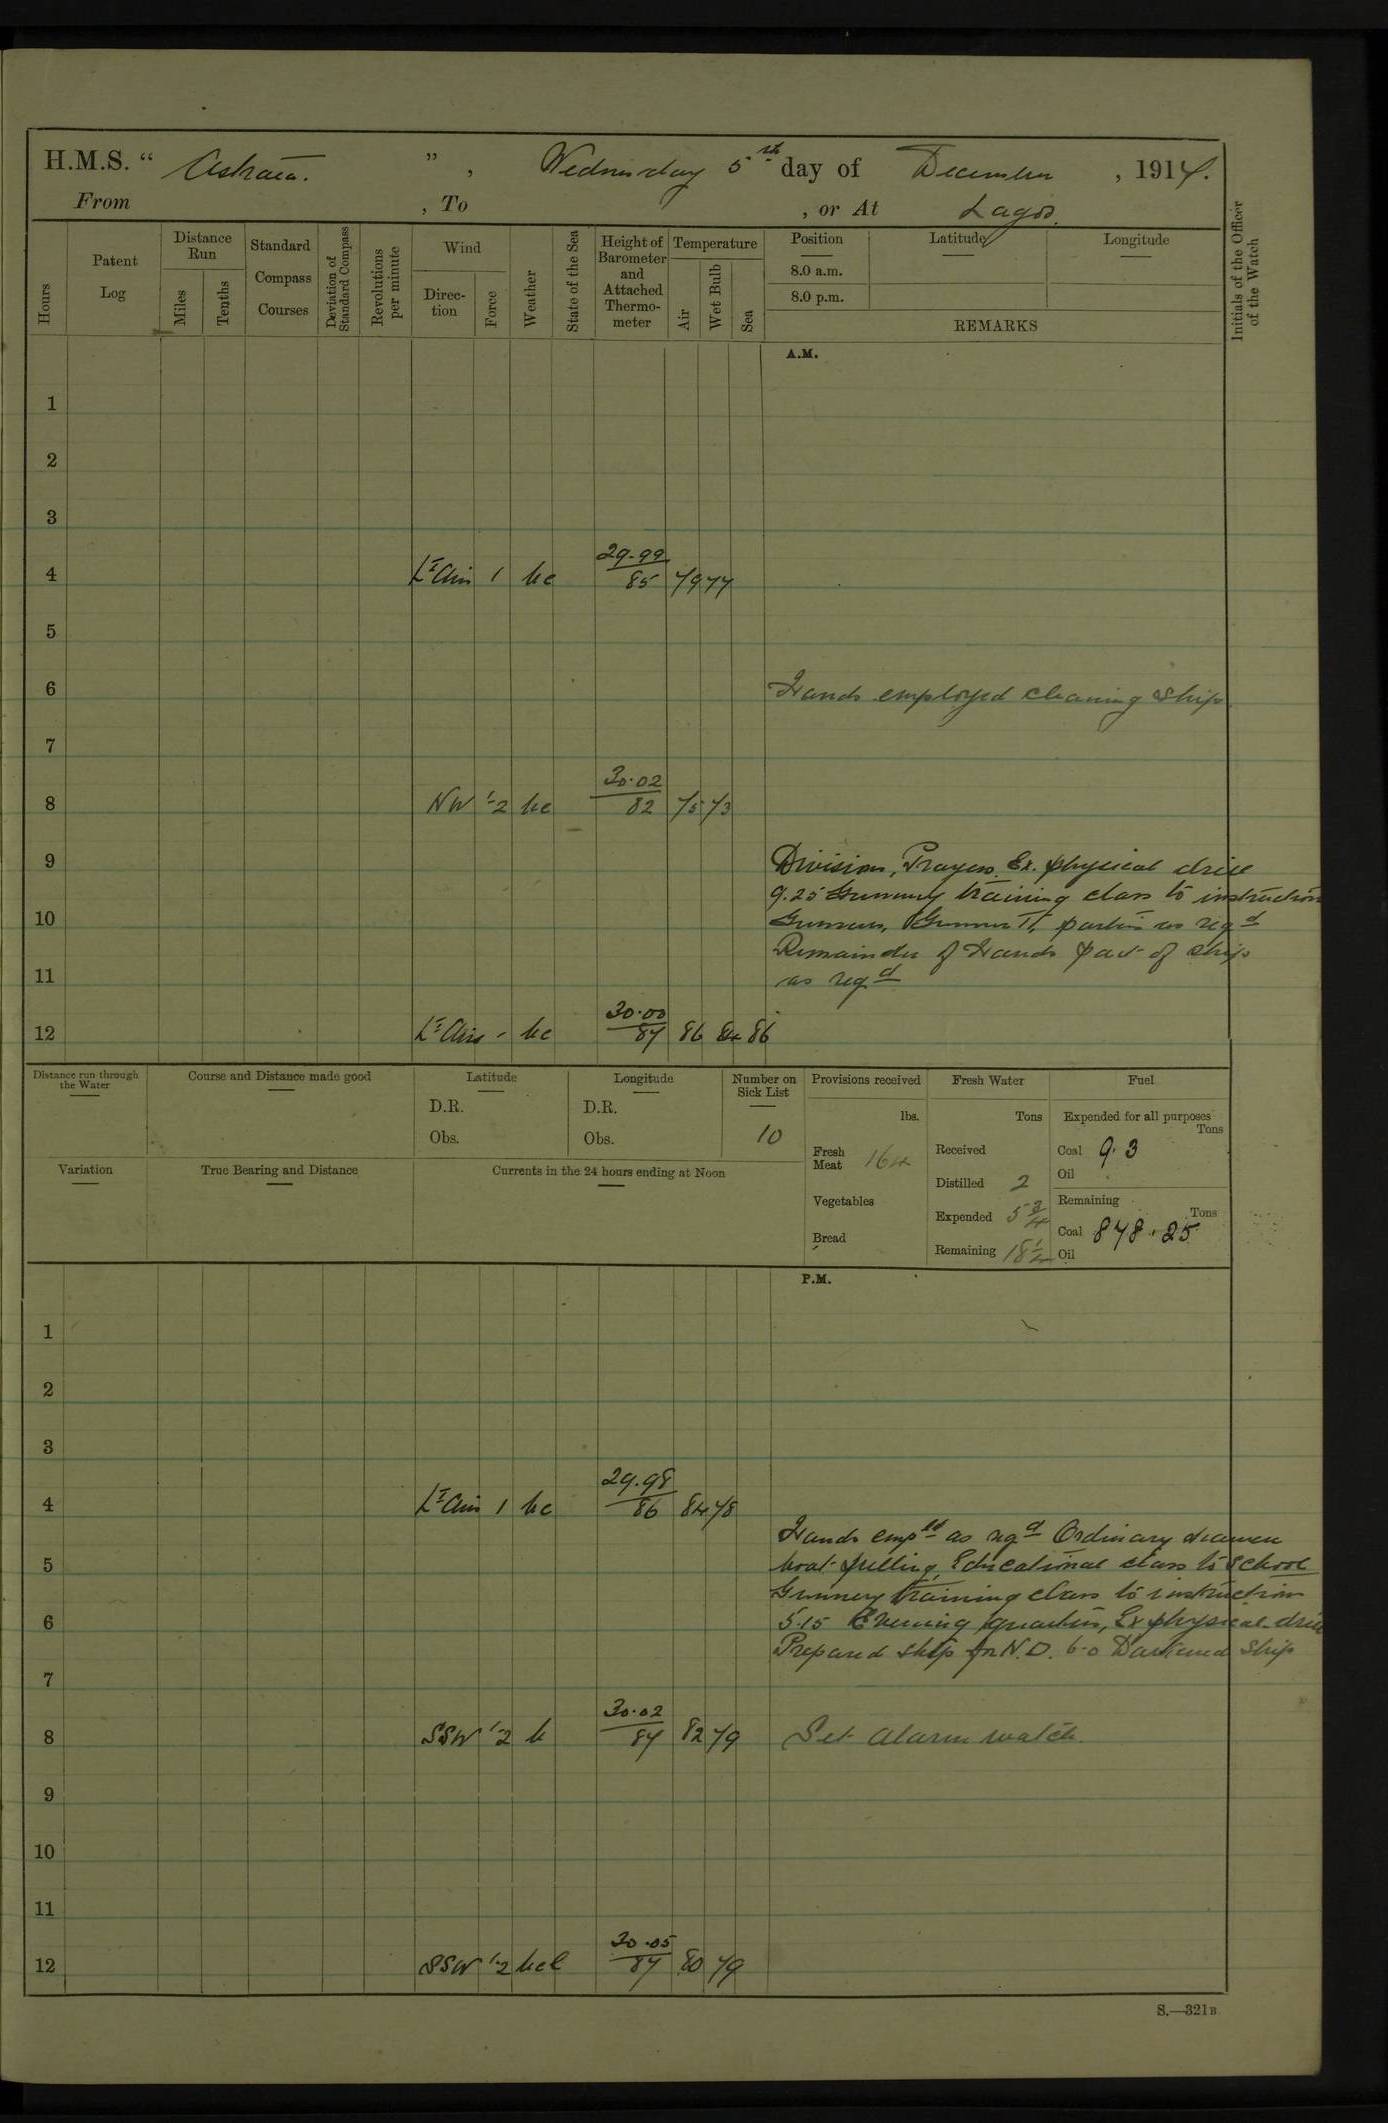 H.M.S. " Astraea. " , Wednesday 5th day of December , 1917.
From , To , or At Lagos.
Hours
Patent Log
Distance Run
Miles
Tenths
Standard Compass Courses
Deviation of Standard Compass
Revolutions per minute
Wind
Direction
Force
Weather
State of the Sea
Height of Barometer and Attached Thermometer
Temperature
Air
Wet Bulb
Sea
Position
Latitude
Longitude
8.0 a.m.
8.0 p.m.
REMARKS
Initials of the Officer of the Watch
A.M.
1
2
3
4 Lt Airs 1 bc 29.99 85 79 77
5
6 Hands employed cleaning ship
7
8 NW 1-2 bc 30.02 82 75 73
9 Division, Prayers. Ex. physical drill
9.25 Gunnery training class to instruction
10 Gunners, Gunner T, parties as reqd
Remainder of Hands part of ship
11 as reqd
12 Lt Airs - bc 30.00 87 86 84 86
Distance run through the Water
Course and Distance made good
Latitude
D.R.
Obs.
Longitude
D.R.
Obs.
Number on Sick List
10
Provisions received
lbs.
Fresh Meat 164
Vegetables
Bread
Fresh Water
Tons
Received
Distilled 2
Expended 5 3/4
Remaining
Fuel
Expended for all purposes
Tons
Coal 9.3
Oil
Remaining
Tons
Coal 878.25
Oil
Variation
True Bearing and Distance
Currents in the 24 hours ending at Noon
P.M.
1
2
3
4 Lt Airs 1 bc 29.98 86 84 78
Hands empld as reqd Ordinary seamen
5 boat pulling, Educational class to School
Gunnery training class to instruction
6 5.15 Evening quarters, Ex physical drill
Prepared ship for N.D. 6.0 Darkened ship
7
8 SSW 1-2 b 30.02 87 82 79 Set alarm watch.
9
10
11
12 SSW 1-2 bcl 30.05 87 80 79
S.—321B